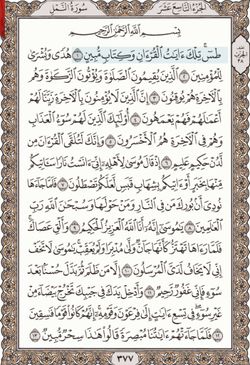 الجزء التاسع عشر سورة النمل
بسم الله الرحمن الرحيم
طس تلك ءايت القرءان وكتاب مبين ١ هدى وبشرى
للمؤمنين ٢ الذين يقيمون الصلوة ويؤتون الزكوة وهم
بالءاخرة هم يوقنون ٣ إن الذين لا يؤمنون بالءاخرة زينا لهم
أعملهم فهم يعمهون ٤ أولئك الذين لهم سوء العذاب
وهم في الءاخرة هم الأخسرون ٥ وإنك لتلقى القرءان من
لدن حكيم عليم ٦ إذ قال موسى لأهله إني ءانست نارا سءاتيكم
منها بخبر أو ءاتيكم بشهاب قبس لعلكم تصطلون ٧ فلما جاءها
نودي أن بورك من في النار ومن حولها وسبحن الله رب
العلمين ٨ يموسى إنه أنا الله العزيز الحكيم ٩ وألق عصاك
فلما رءاها تهتز كأنها جان ولى مدبرا ولم يعقب يموسى لا تخف
إني لا يخاف لدي المرسلون ١٠ إلا من ظلم ثم بدل حسنا بعد
سوء فإني غفور رحيم ١١ وأدخل يدك في جيبك تخرج بيضاء من
غير سوء في تسع ءايت إلى فرعون وقومه إنهم كانوا قوما فسقين
١٢ فلما جاءتهم ءايتنا مبصرة قالوا هذا سحر مبين ١٣
٣٧٧